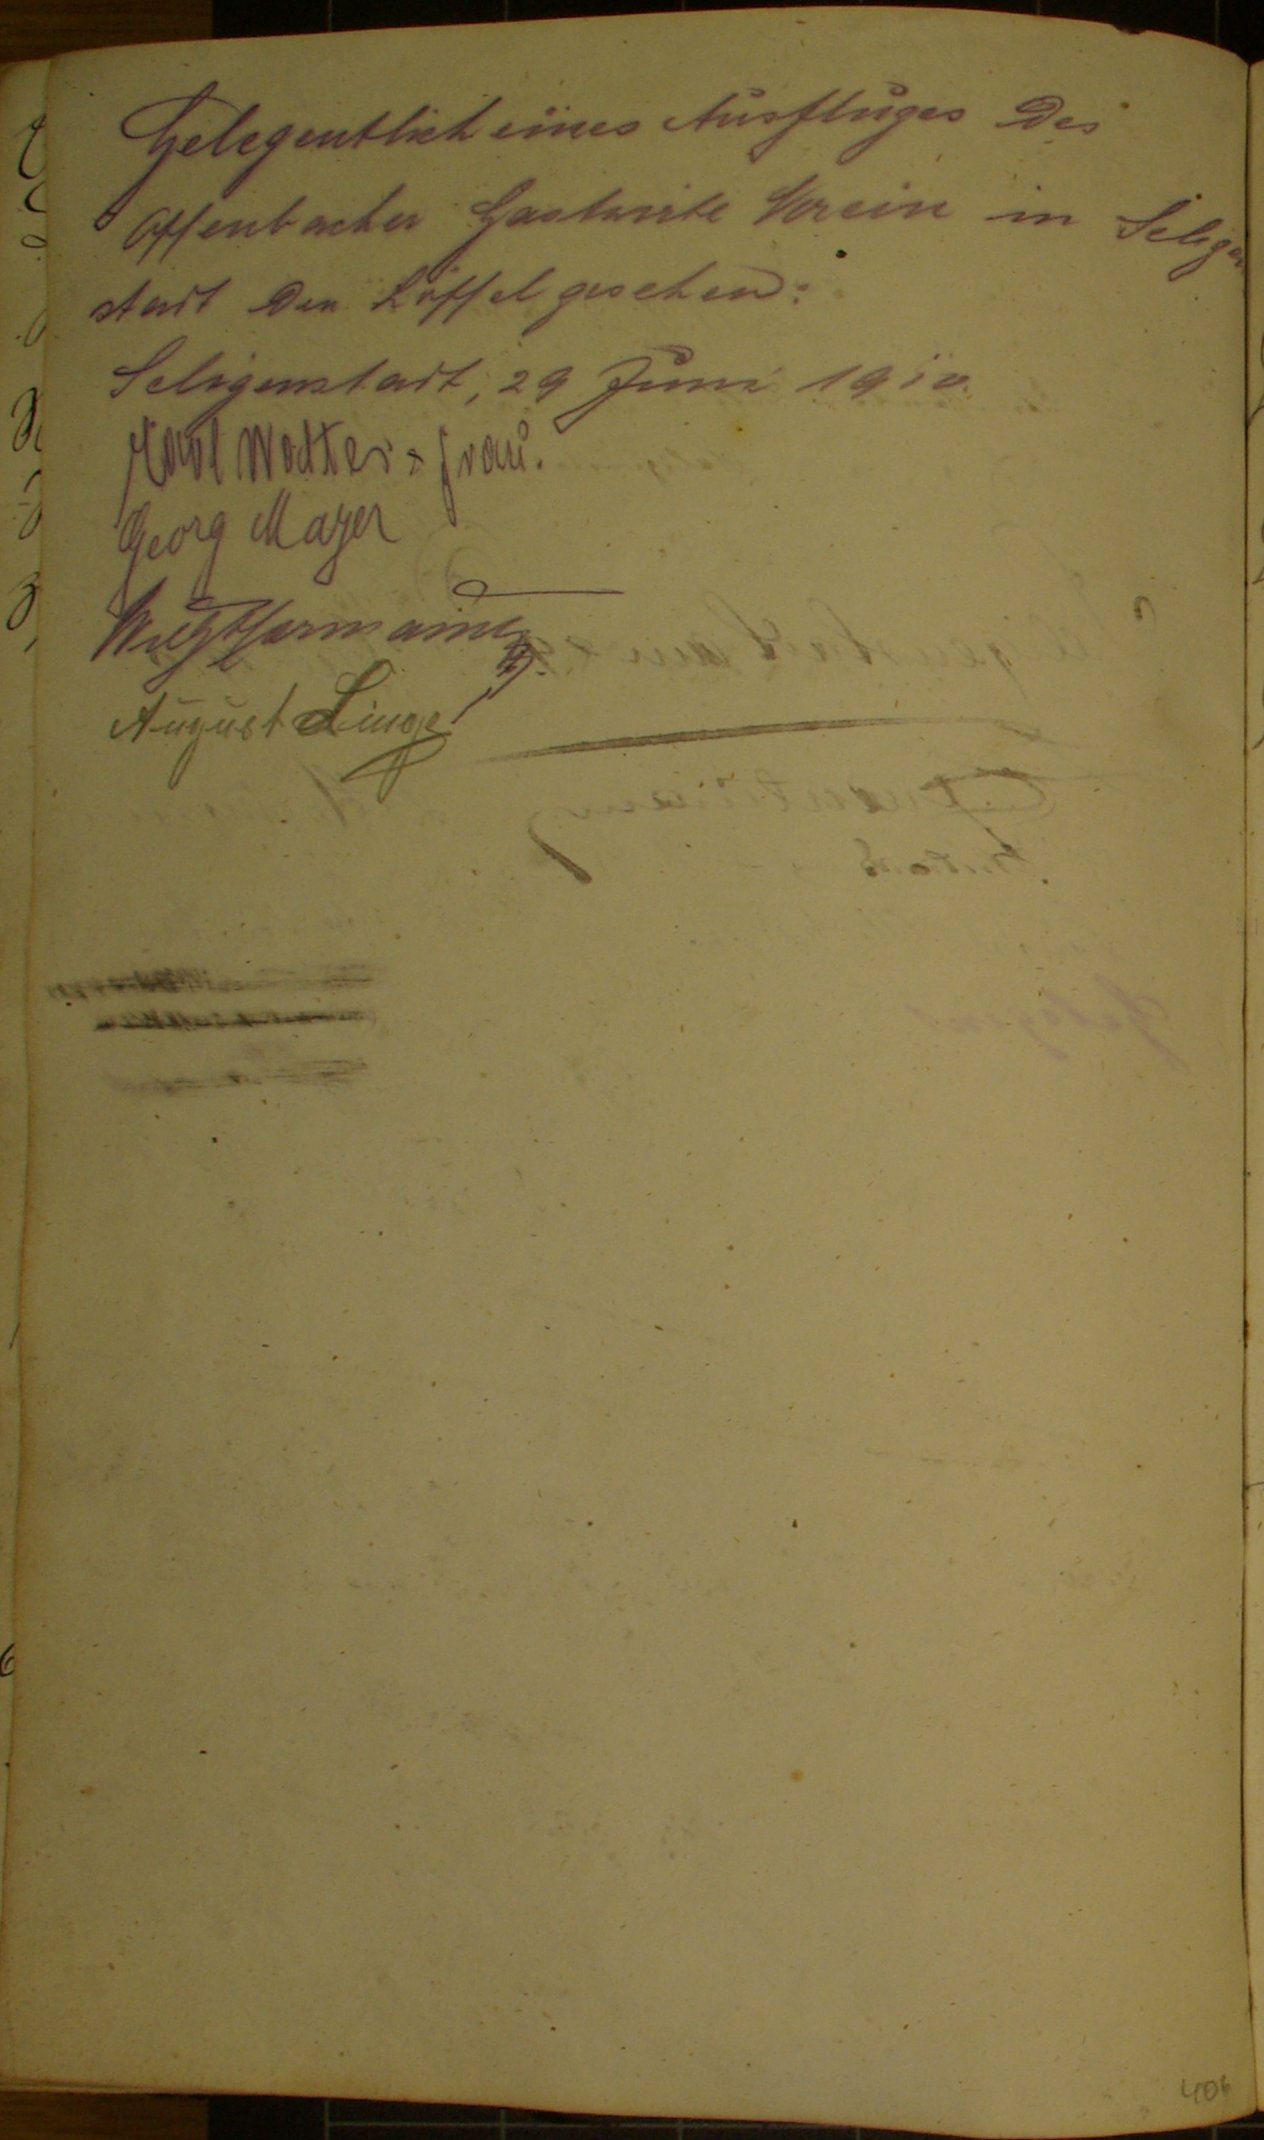 Gelegentlich eines Ausfluges des
Offenbacher Gastwirte Verein in Seligen
stadt den Löffel gesehen:
Seligenstadt, 29 Juni 1910.
Karl Walter & Frau.
Georg Mayer
August Linge
406